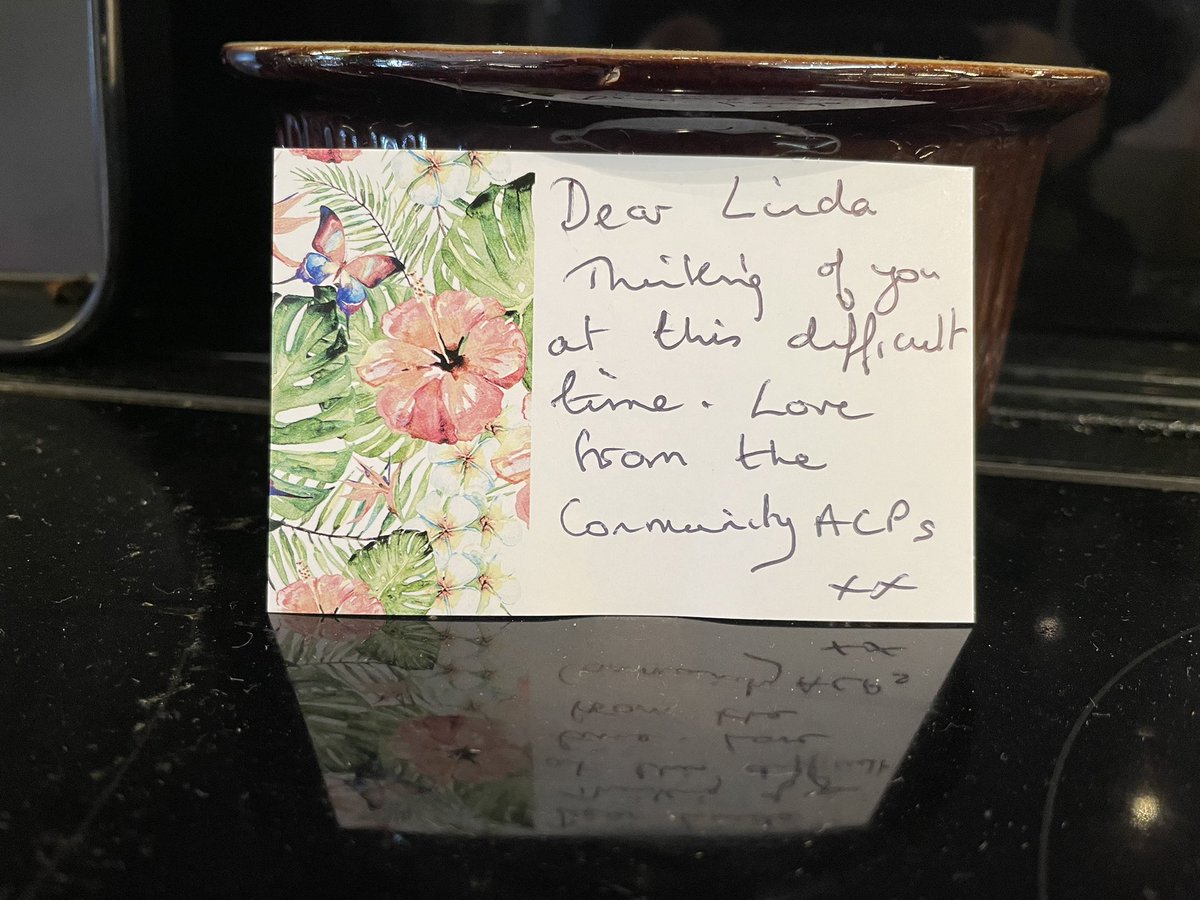 Dear Linda
Thinking of you
at this difficult
time. Love
from the
Community ACPs
xx